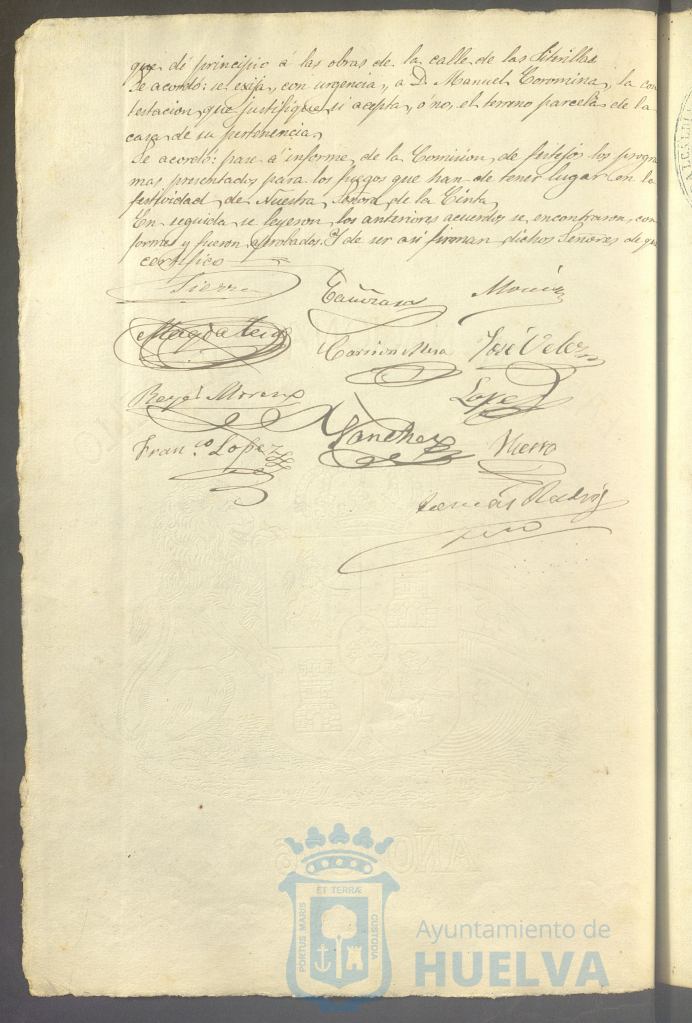 que dé principio á las obras de la calle de las
Se acordó: se exija, con urgencia, a D. Manuel Coromina, la con
testacion que justifique si acepta, ó no, el terreno parcela de la
casa de su pertenencia,
Se acordó: pase á informe, de la Comision, de festejos los progra
mas presentados para los fuegos que han de tener lugar en la
festividad de Nuestra Señora de la Cinta,
En seguida se leyeron los anteriores acuerdos se encontraron, con
formes y fueron aprobados. Y de ser asi firman dichos Señores de que
certifico
Sierra
José Velez
Reyes Moreno
Lopez
Fran.co Lopez
Sanchez
Hierro
AÑO
PORTUS MARIS
ET TERRÆ
CUSTODIA
Ayuntamiento de
HUELVA